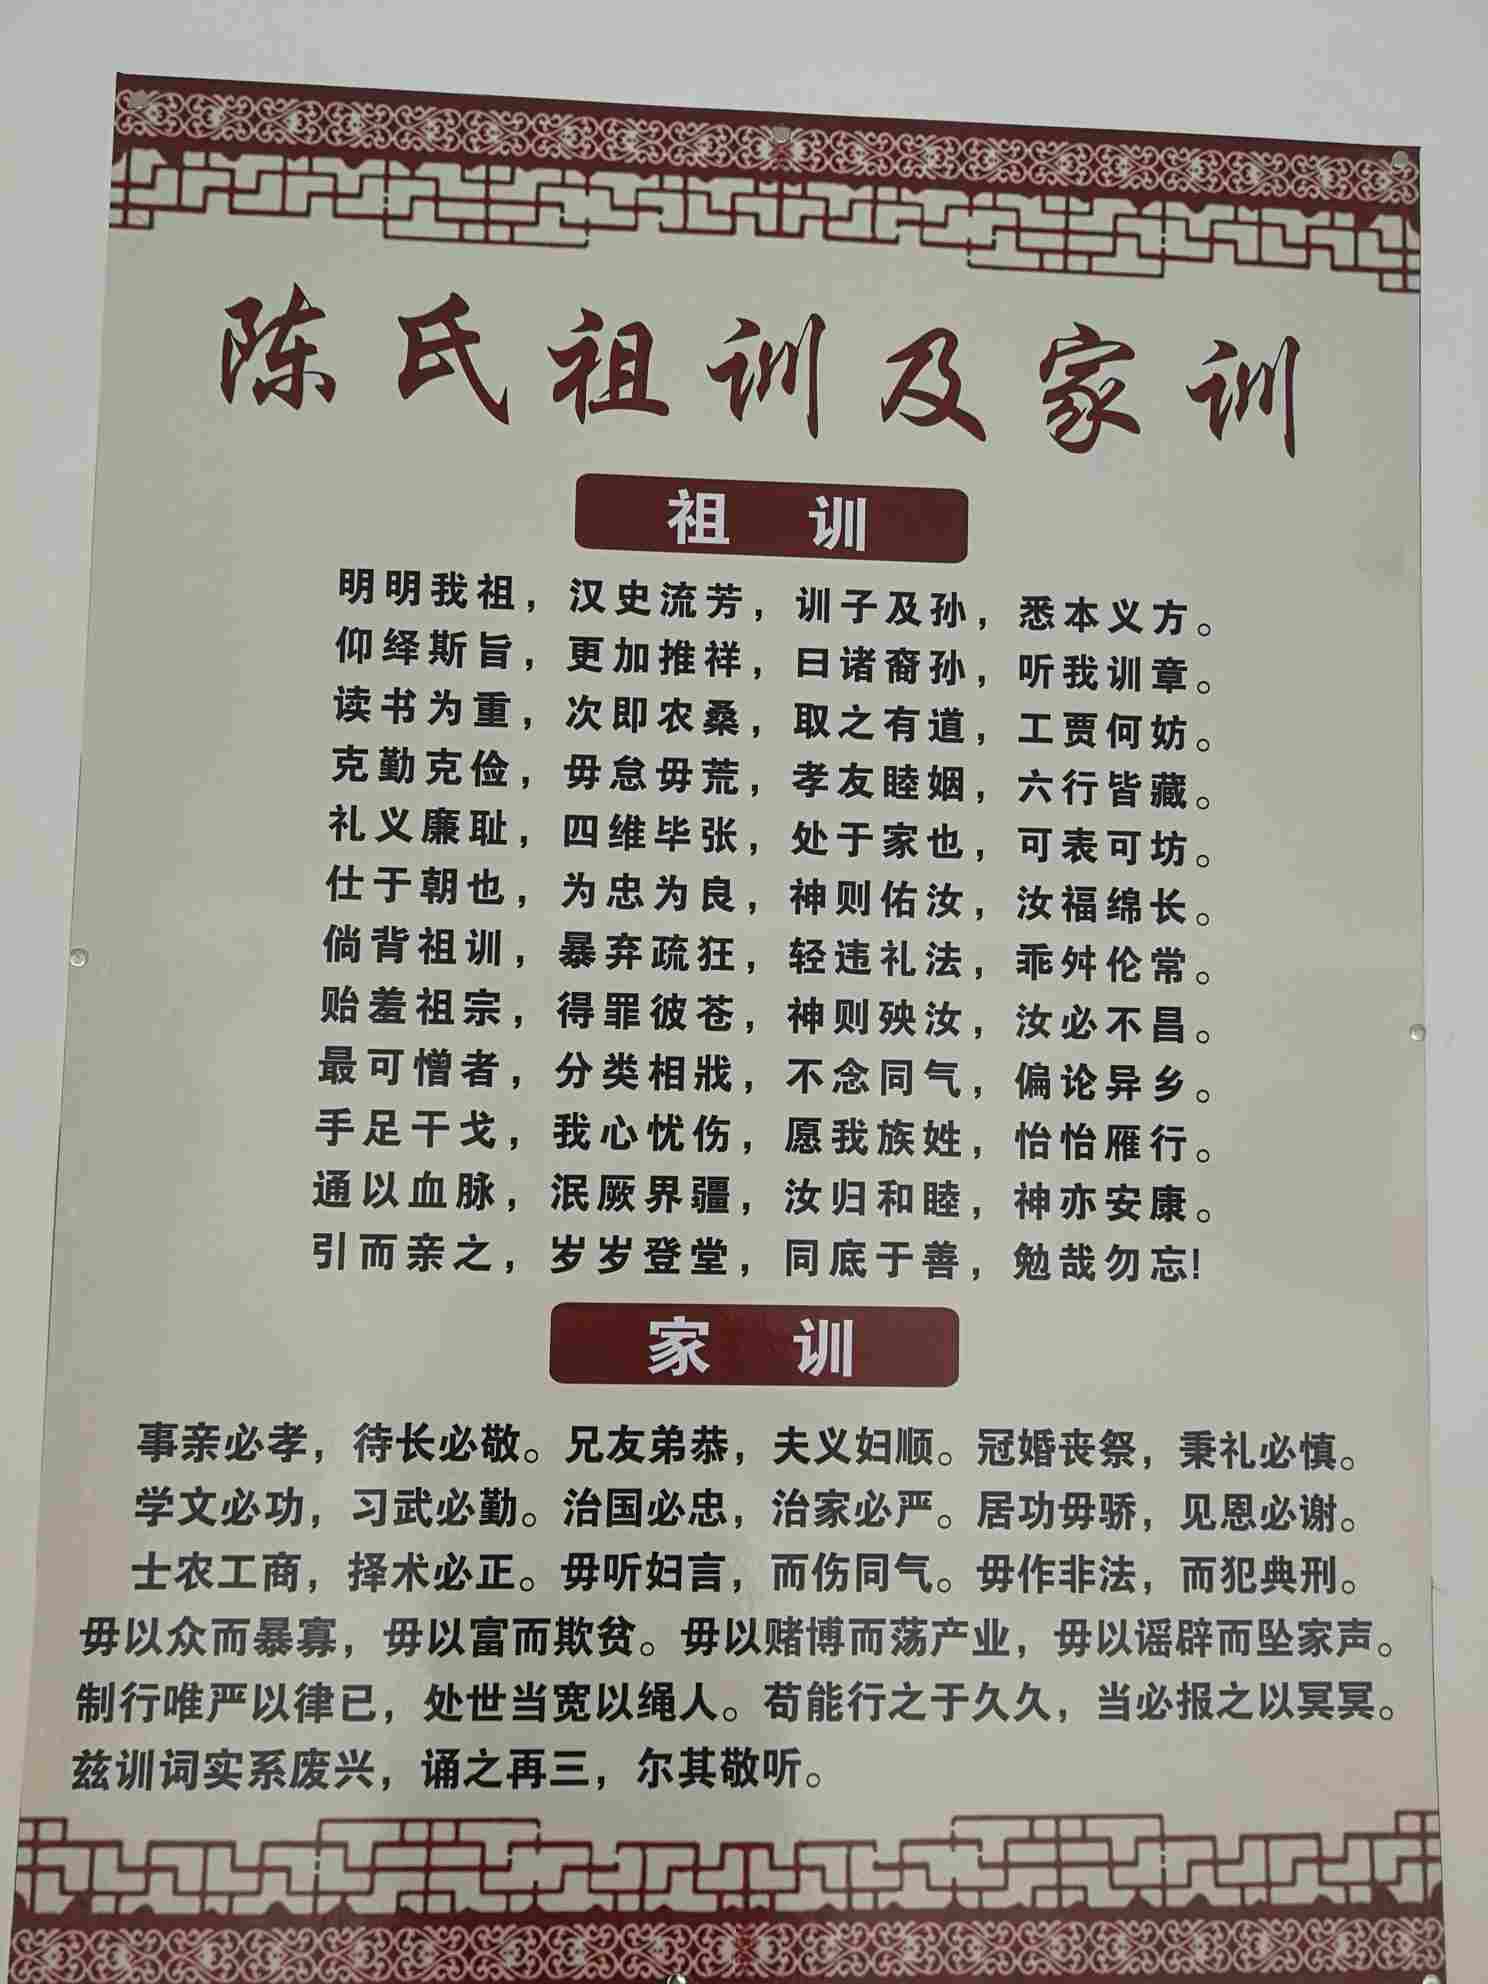 陈氏祖训及家训
祖 训
明明我祖，汉史流芳，训子及孙，悉本义方。
仰绎斯旨，更加推祥，曰诸裔孙，听我训章。
读书为重，次即农桑，取之有道，工贾何妨。
克勤克俭，毋怠毋荒，孝友睦姻，六行皆藏。
礼义廉耻，四维毕张，处于家也，可表可坊。
仕于朝也，为忠为良，神则佑汝，汝福绵长。
倘背祖训，暴弃疏狂，轻违礼法，乖舛伦常。
贻羞祖宗，得罪彼苍，神则殃汝，汝必不昌。
最可憎者，分类相戕，不念同气，偏论异乡。
手足干戈，我心忧伤，愿我族姓，怡怡雁行。
通以血脉，泯厥界疆，汝归和睦，神亦安康。
引而亲之，岁岁登堂，同底于善，勉哉勿忘!
家 训
事亲必孝，待长必敬。兄友弟恭，夫义妇顺。冠婚丧祭，秉礼必慎。
学文必功，习武必勤。治国必忠，治家必严。居功毋骄，见恩必谢。
士农工商，择术必正。毋听妇言，而伤同气。毋作非法，而犯典刑。
毋以众而暴寡，毋以富而欺贫。毋以赌博而荡产业，毋以谣辟而坠家声。
制行唯严以律已，处世当宽以绳人。苟能行之于久久，当必报之以冥冥。
兹训词实系废兴，诵之再三，尔其敬听。